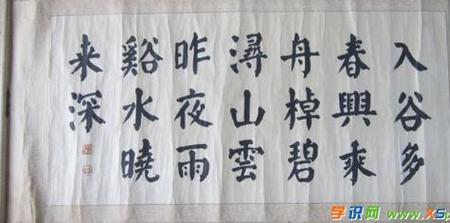 入谷多
春興乘
舟棹碧
潯山雲
昨夜雨
谿水曉
来深
学识网 www.x5